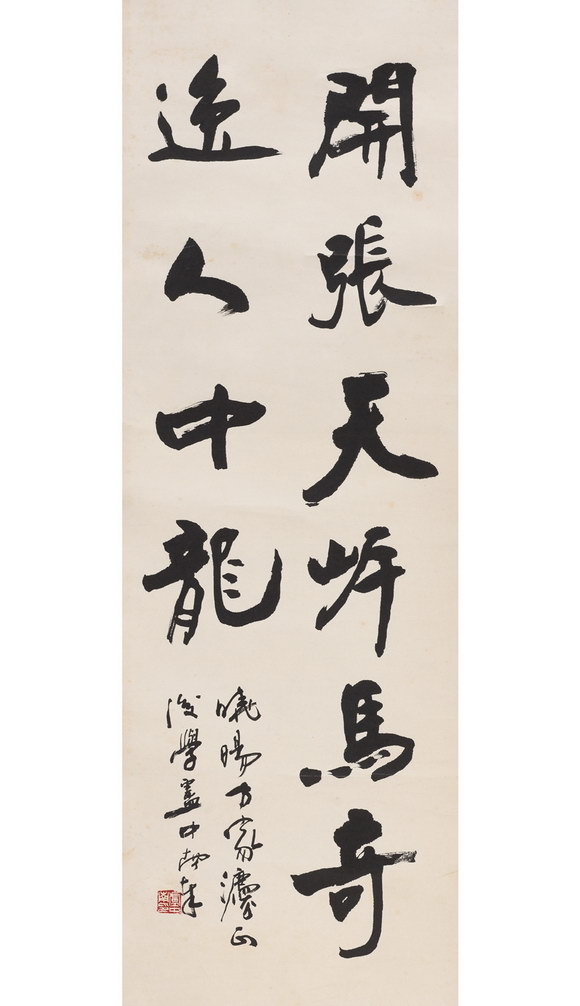 開張天岸馬奇
逸人中龍
曉暘方家灋正
後學盧中南奉